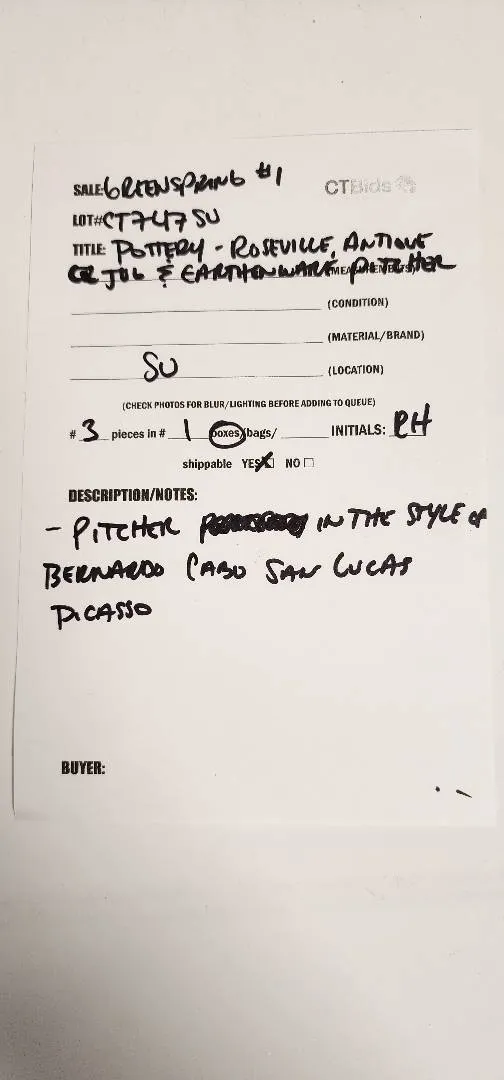 SALE: GREENSPRING #1 CTBids
LOT# CT747SU
TITLE: POTTERY - ROSEVILLE, ANTIQUE
JUG & EARTHENWARE PITCHER
(CONDITION)
(MATERIAL/BRAND)
SU (LOCATION)
(CHECK PHOTOS FOR BLUR/LIGHTING BEFORE ADDING TO QUEUE)
# 3 pieces in # 1 boxes/bags/ INITIALS: RH
shippable YES NO
DESCRIPTION/NOTES:
- PITCHER IN THE STYLE OF
BERNARDO CABO SAN LUCAS
PICASSO
BUYER: